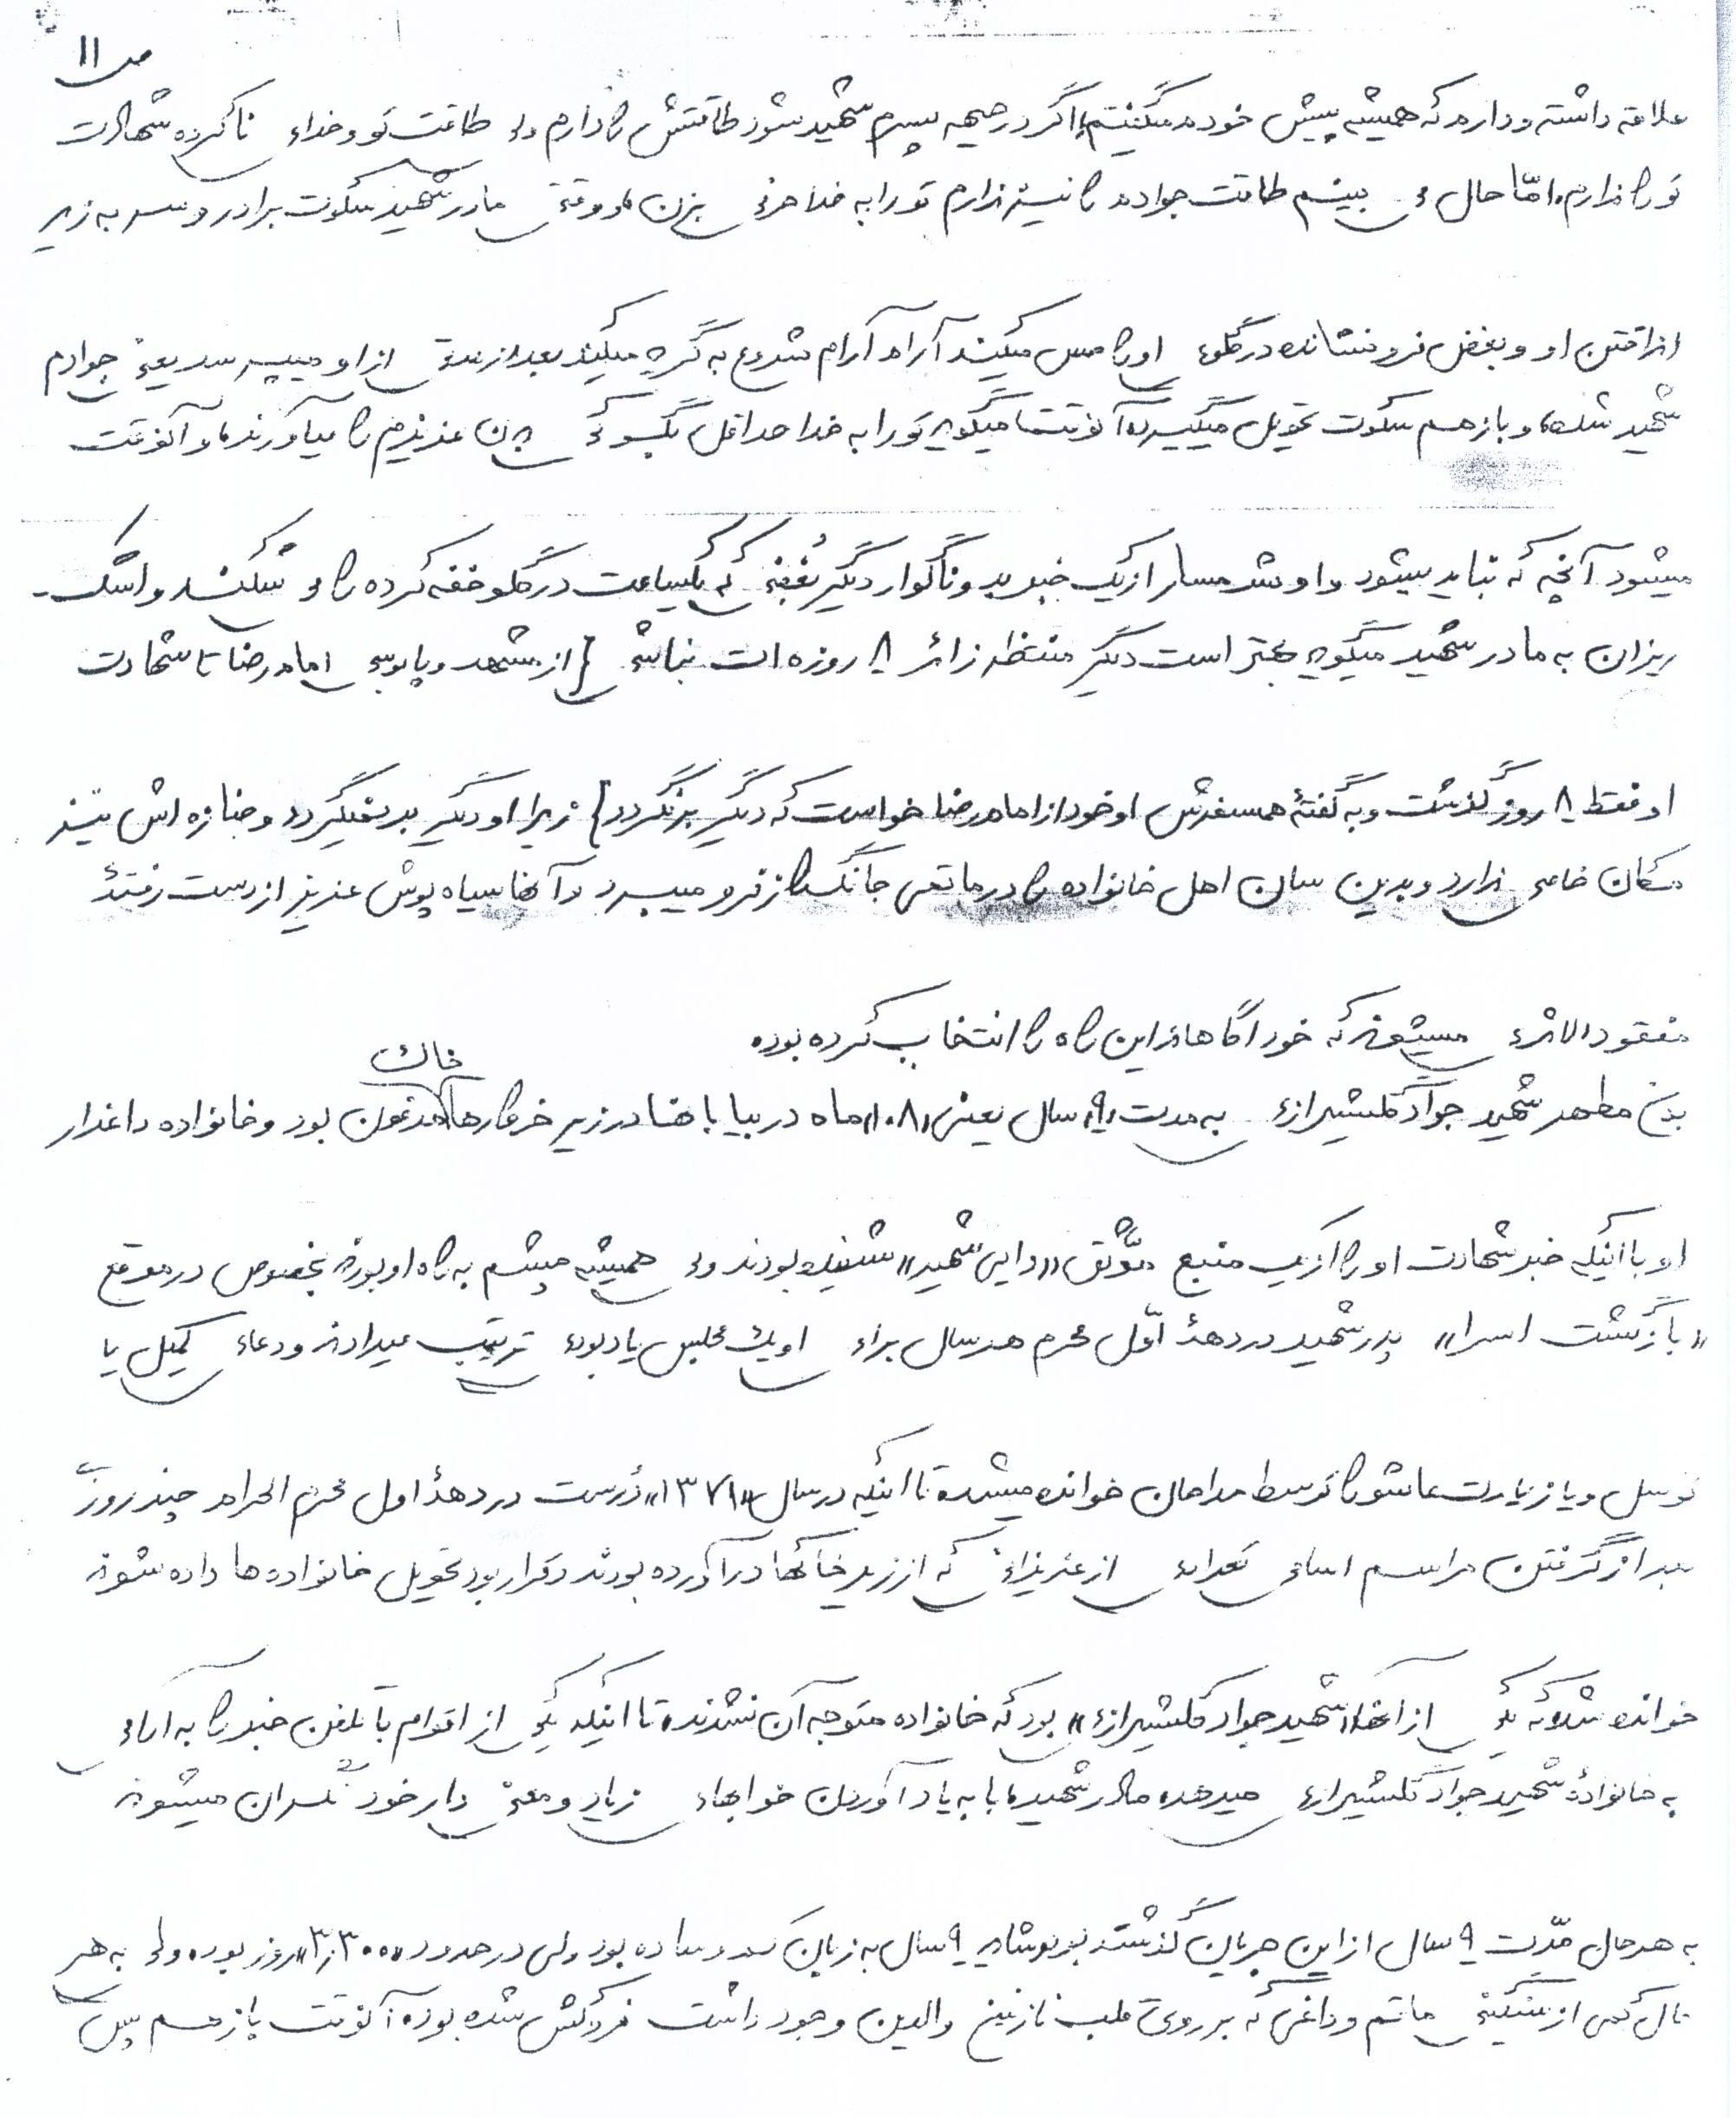 ص ۱۱
علاقه داشته و دارم که همیشه پیش خودم میگفتم، اگر در جبهه پسرم شهید شود طاقتش را دارم ولی طاقت تو و خدای ناکرده شهادت
تو را ندارم، امّا حال می بینم طاقت جوادم را نیز ندارم تو را به خدا حرفی بزن، و وقتی مادر شهید سکوت برادر و سر به زیر
انداختن او و بغض فرو نشانده در گلوی او را حس میکند آرام آرام شروع به گریه میکند بعد از مدتی از او میپرسد یعنی جوادم
شهید شده، و باز هم سکوت تحویل میگیرد، آنوقت میگوید تو را به خدا حداقل بگو کی بدن عزیزم را میآورند، و آنوقت
میشود آنچه که نباید بشود و او شرمسار از یک خبر بد و ناگوار دیگر بُغضی که یکساعت در گلو خفه کرده را می شکند و اشک-
ریزان به مادر شهید میگوید بهتر است دیگر منتظر زائر ۸ روزه ات نباشی {از مشهد و پابوسی امام رضا تا شهادت
او فقط ۸ روز گذشت و به گفتهٔ همسفرش او خود از امام رضا خواست که دیگر برنگردد} زیرا او دیگر برنمیگردد و جنازه اش نیز
مکان خاصی ندارد و بدین سان اهل خانواده را در ماتمی جانگداز فرو میبرد و آنها سیاه پوش عزیز از دست رفتهٔ
مفقودالاثری میشوند که خود آگاهانه این راه را انتخاب کرده بود.
بدن مطهر شهید جواد گلشیرازی به مدت «۹» سال یعنی «۱۰۸» ماه در بیابانها در زیر خروارها خاک مدفون بود و خانواده داغدار
او با اینکه خبر شهادت او را از یک منبع موّثق «دایی شهید» شنیده بودند ولی همیشه چشم به راه او بودند بخصوص در موقع
«بازگشت اسرا» پدر شهید در دههٔ اوّل محرم هر سال برای او یک مجلس یادبودی ترتیب میدادند و دعای کمیل یا
توسل و یا زیارت عاشورا توسط مداحان خوانده میشد، تا اینکه در سال «۱۳۷۱» دُرست در دههٔ اول محرم الحرام چند روز
بعد از گرفتن مراسم اسامی تعدادی از عزیزانی که از زیر خاکها در آورده بودند و قرار بود تحویل خانواده ها داده شوند
خوانده شد، که یکی از آنها «شهید جواد گلشیرازی» بود که خانواده متوجه آن نشدند، تا اینکه یکی از اقوام با تلفن خبر را به
به خانوادهٔ شهید جواد گلشیرازی میدهد، مادر شهید، با به یاد آوردن خوابهای زیاد و معنی دار خود نگران میشوند
به هر حال مّدت ۹ سال از این جریان گذشته بود، شاید ۹ سال به زبان ساده بود ولی در حدود «۳۰۰۰» روز بوده ولی به هر
حال کمی از سنگینی ماتم و داغی که بر روی قلب نازنین والدین وجود داشت فروکش شده بود، آنوقت باز هم پس